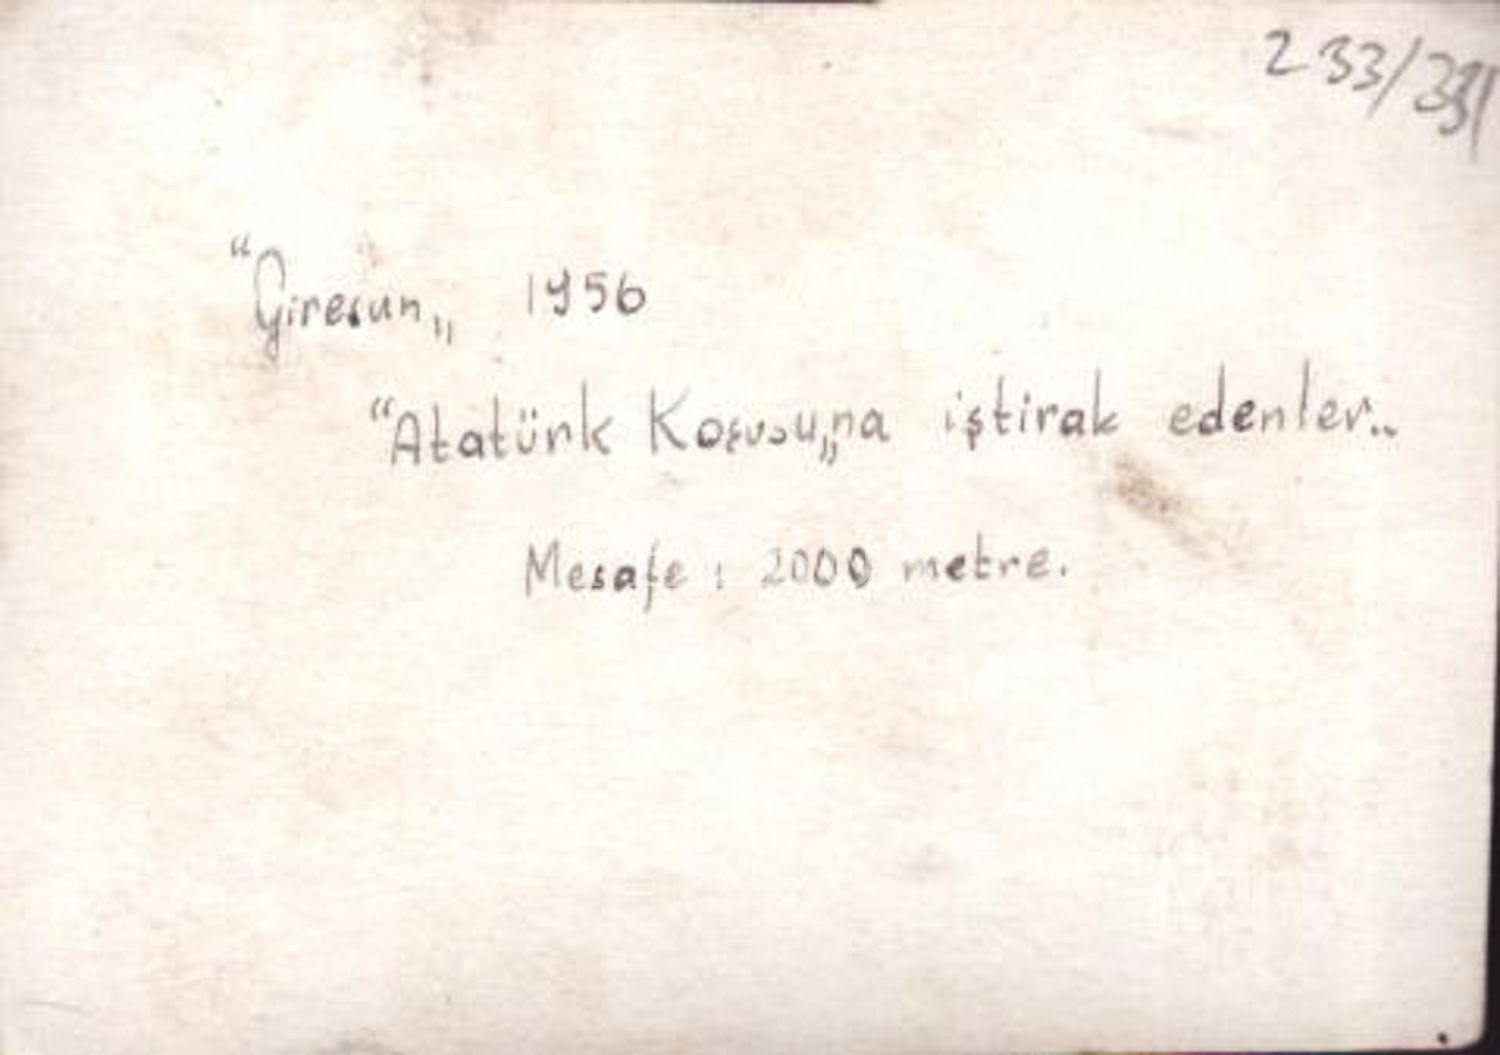 233/331
“Giresun„ 1956
“Atatürk Koşusu„na iştirak edenler..
Mesafe : 2000 metre.